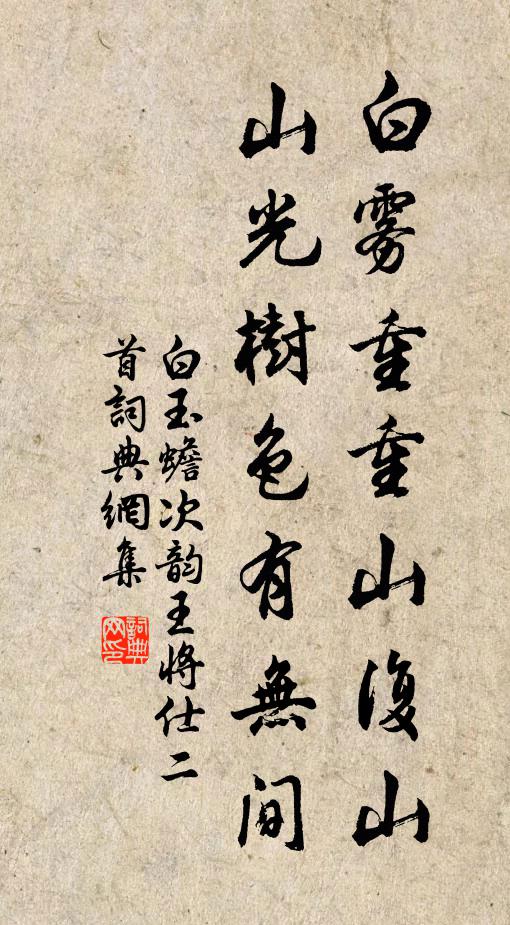 白雾重重山復山
山光樹色有無间
白玉蟾次韵王将仕二
首詞典網集
詞典
网印